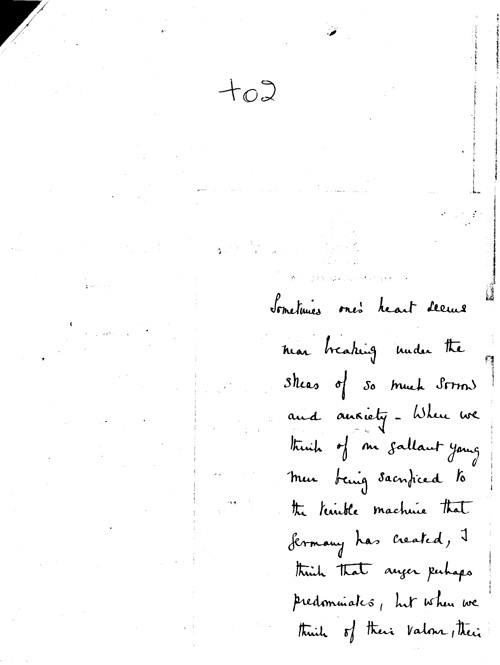 to2
Sometimes one's heart seems
near breaking under the
stress of so much sorrow
and anxiety - When we
think of our gallant young
men being sacrificed to
the terrible machine that
Germany has created, I
think that anger perhaps
predominates, but when we
think of their valour, their